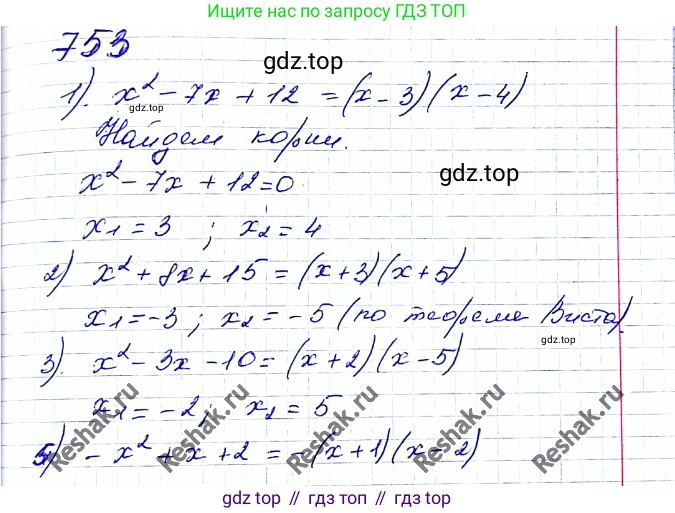 Ищите нас по запросу ГДЗ ТОП
753
gdz.top
1). x² - 7x + 12 = (x - 3)(x - 4)
gdz.top
Найдем корни.
x² - 7x + 12 = 0
gdz.top
x1 = 3 ; x2 = 4
2) x² + 8x + 15 = (x + 3)(x + 5)
x1 = -3 ; x2 = -5 (по теореме Виета)
gdz.top
3). x² - 3x - 10 = (x + 2)(x - 5)
x1 = -2 ; x2 = 5
Reshak.ru
Reshak.ru
Reshak.ru
5) -x² + x + 2 = -(x + 1)(x - 2)
gdz top // гдз топ // gdz.top